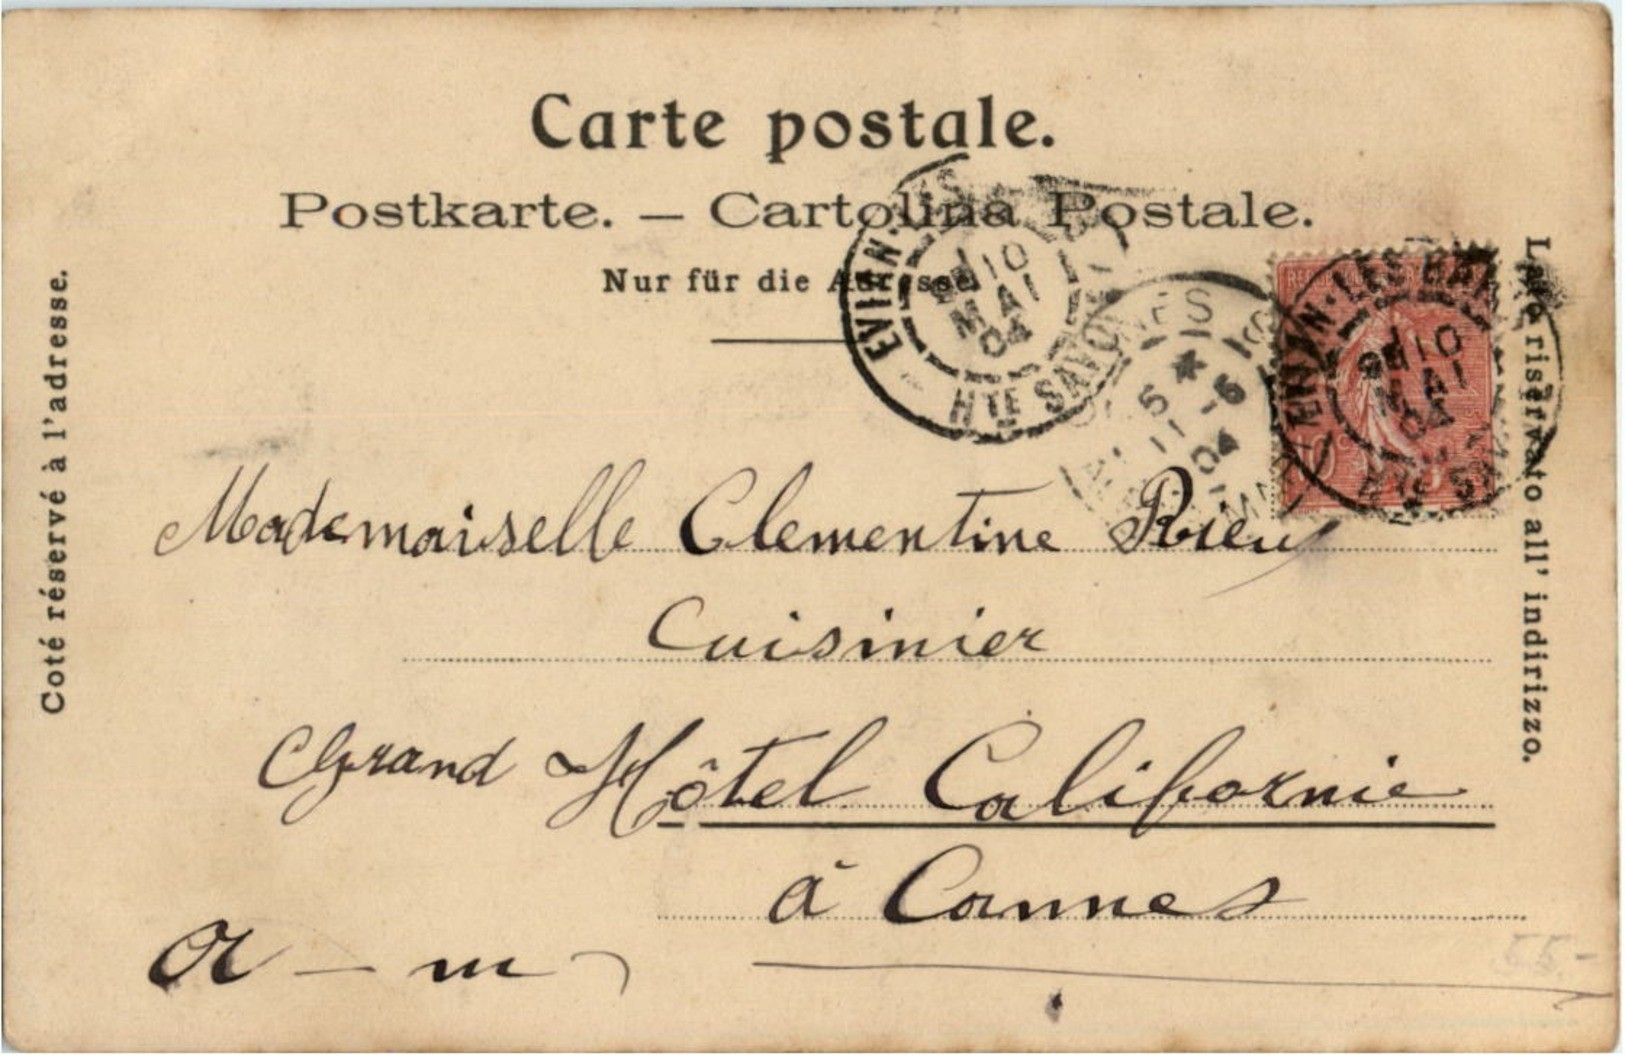 Carte postale.
Postkarte. — Cartolina Postale.
Nur für die Adresse.
Coté réservé à l'adresse.
Lato riservato all' indirizzo.
EVIAN-LES-BAINS
10
MAI
04
HTE SAVOIE
CANNES
5 * 5
11 - 5
04
EVIAN-LES-BAINS
10
MAI
04
10
Mademaiselle Clementine Rieu
Cuisinier
Grand Hôtel Californie
à Cannes
A - m
55-